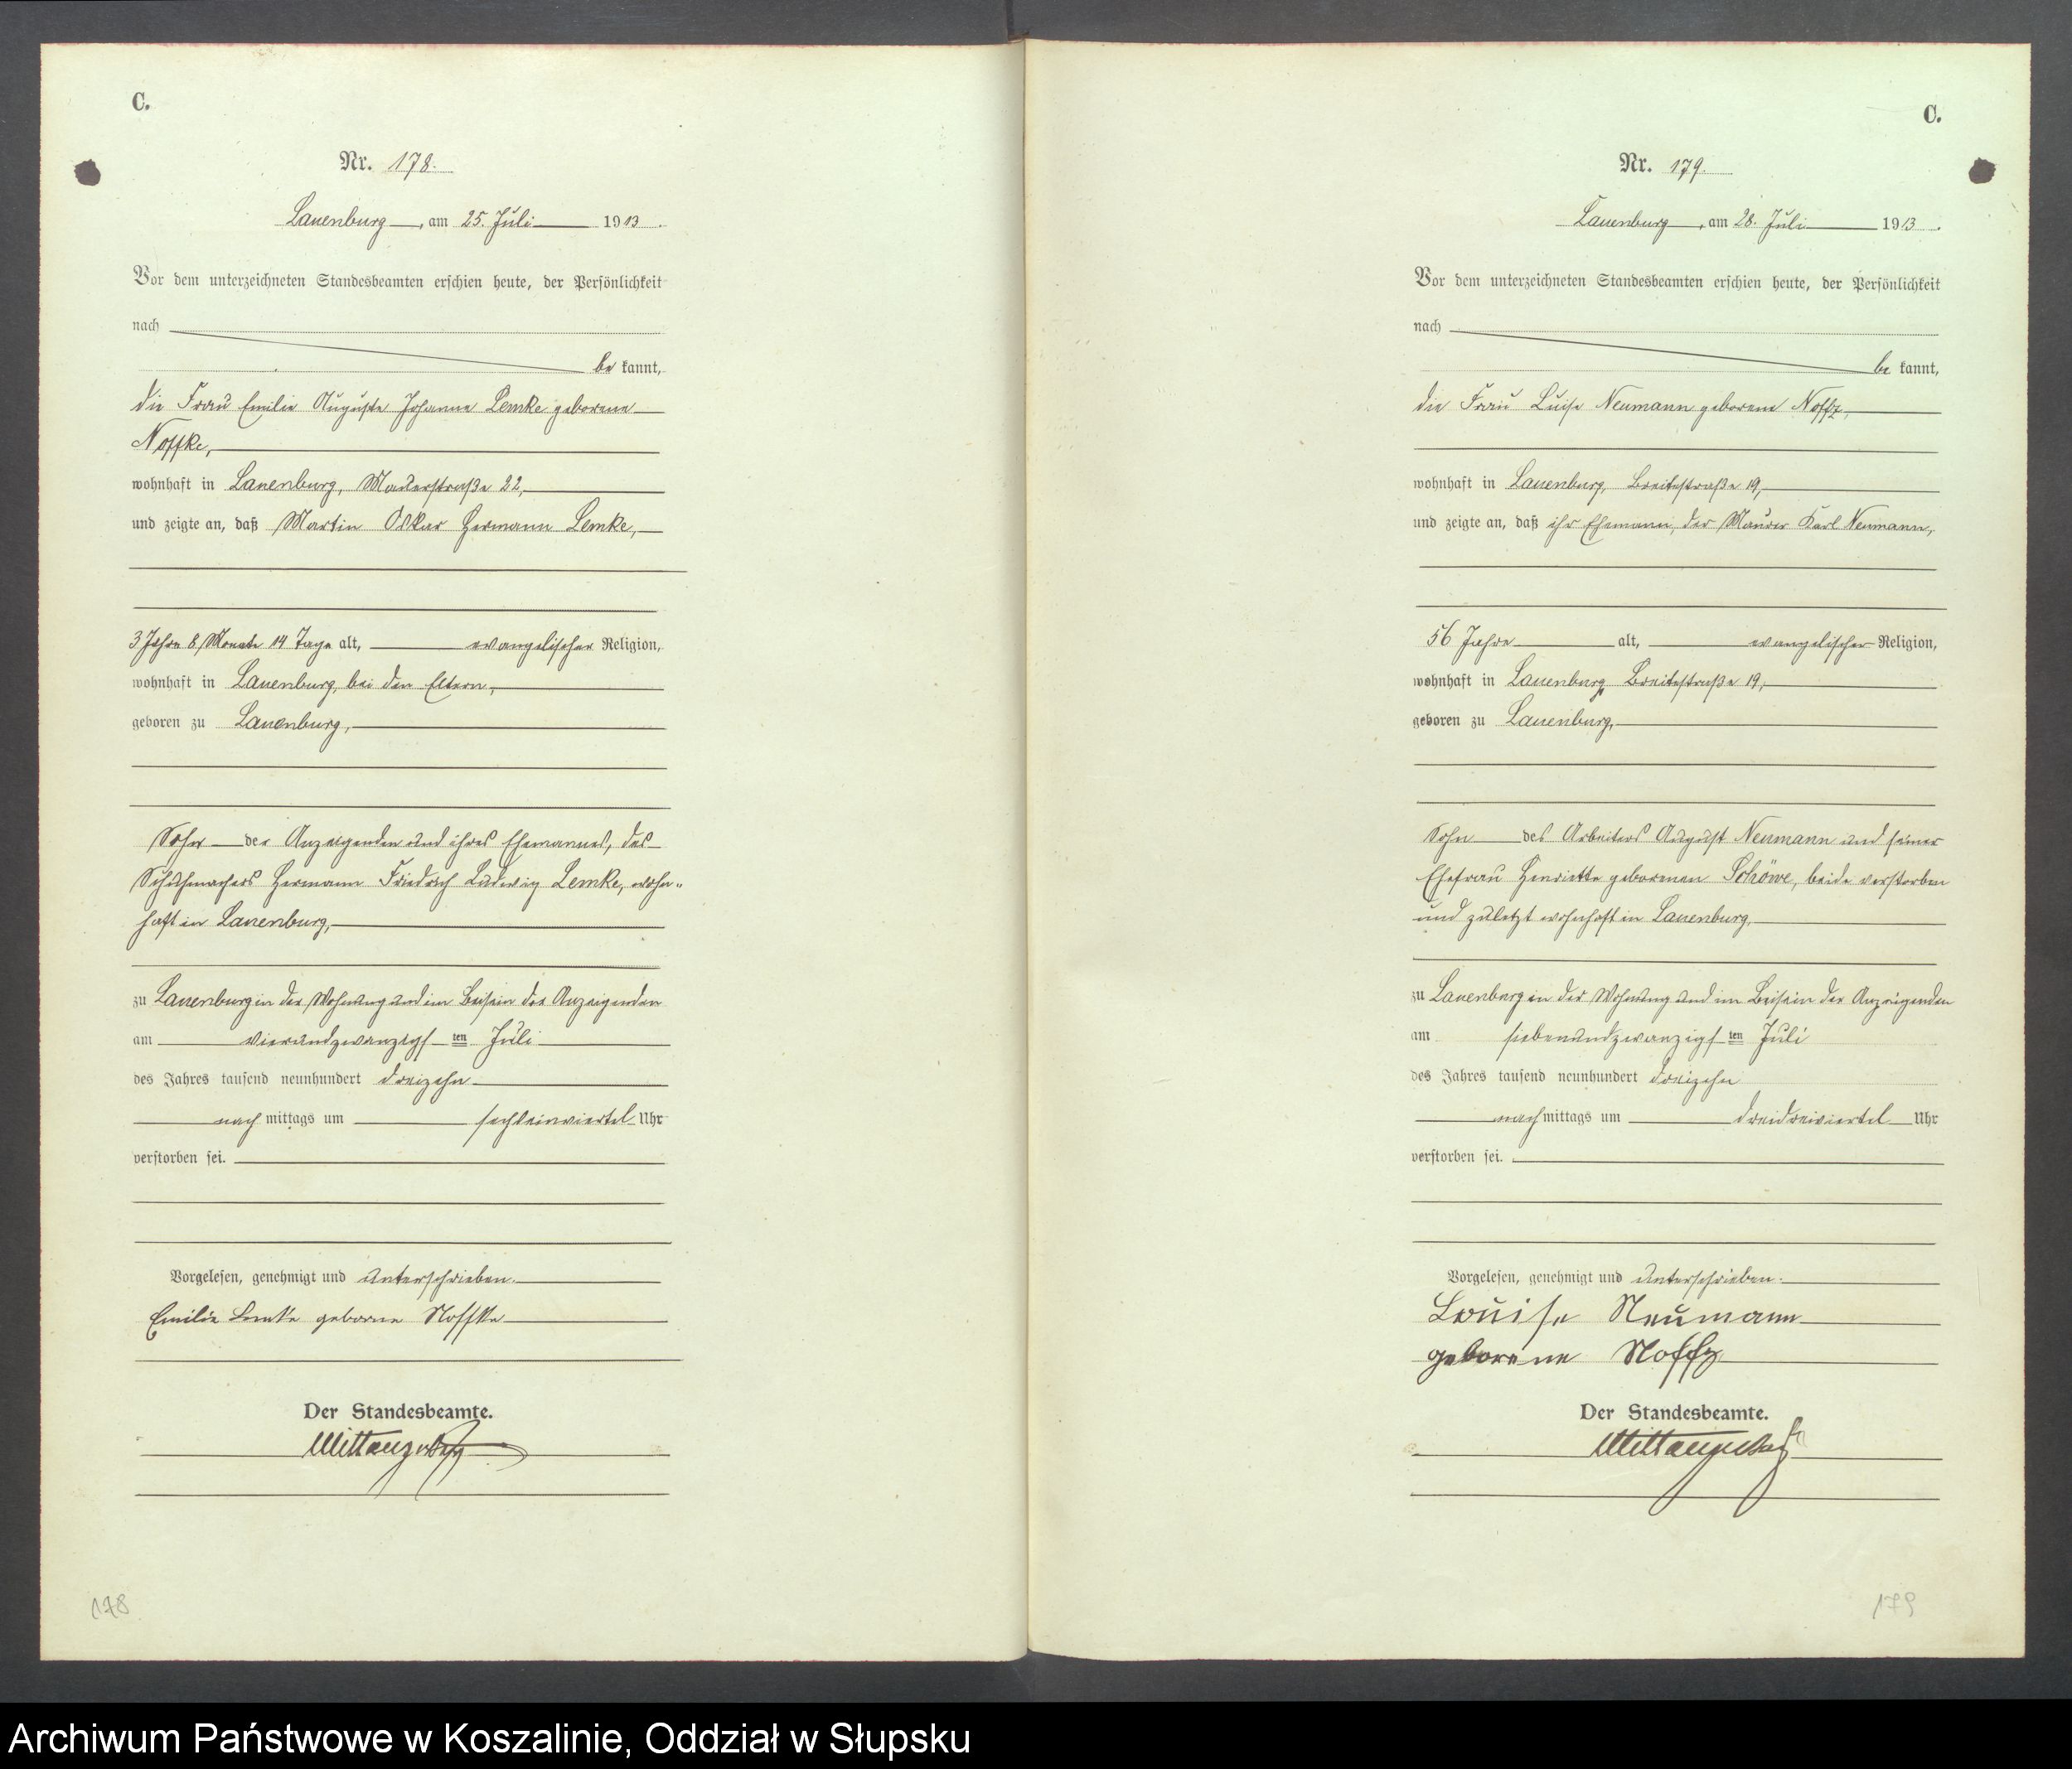 C.
Nr. 178.
Lauenburg, am 25. Juli 1913.
Vor dem unterzeichneten Standesbeamten erschien heute, der Persönlichkeit
nach
be kannt,
die Frau Emilie Auguste Johanne Lemke geborene
Noffke,
wohnhaft in Lauenburg, Mauerstraße 22,
und zeigte an, daß Martin Oskar Hermann Lemke,
3 Jahre 8 Monate 14 Tage alt, evangelischer Religion,
wohnhaft in Lauenburg, bei den Eltern,
geboren zu Lauenburg,
Sohn der Anzeigenden und ihres Ehemannes, des
Schuhmachers Hermann Friedrich Ludwig Lemke, wohn„
haft in Lauenburg,
zu Lauenburg in der Wohnung und im Beisein der Anzeigenden
am vierundzwanzigsten Juli
des Jahres tausend neunhundert dreizehn
nach mittags um sechseinviertel Uhr
verstorben sei.
Vorgelesen, genehmigt und unterschrieben.
Emilie Lemke geborne Noffke
Der Standesbeamte.
178
C.
Nr. 179.
Lauenburg, am 28. Juli 1913.
Vor dem unterzeichneten Standesbeamten erschien heute, der Persönlichkeit
nach
be kannt,
die Frau Luise Neumann geborene Noffz,
wohnhaft in Lauenburg, Breitestraße 19,
und zeigte an, daß ihr Ehemann, der Maurer Karl Neumann,
56 Jahre alt, evangelischer Religion,
wohnhaft in Lauenburg Breitestraße 19,
geboren zu Lauenburg,
Sohn des Arbeiters August Neumann und seiner
Ehefrau Henriette geborenen Schöwe, beide verstorben
und zuletzt wohnhaft in Lauenburg,
zu Lauenburg in der Wohnung und im Beisein der Anzeigenden
am siebenundzwanzigsten Juli
des Jahres tausend neunhundert dreizehn
nach mittags um dreidreiviertel Uhr
verstorben sei.
Vorgelesen, genehmigt und unterschrieben.
Louise Neumann
geborene Noffz
Der Standesbeamte.
179
Archiwum Państwowe w Koszalinie, Oddział w Słupsku